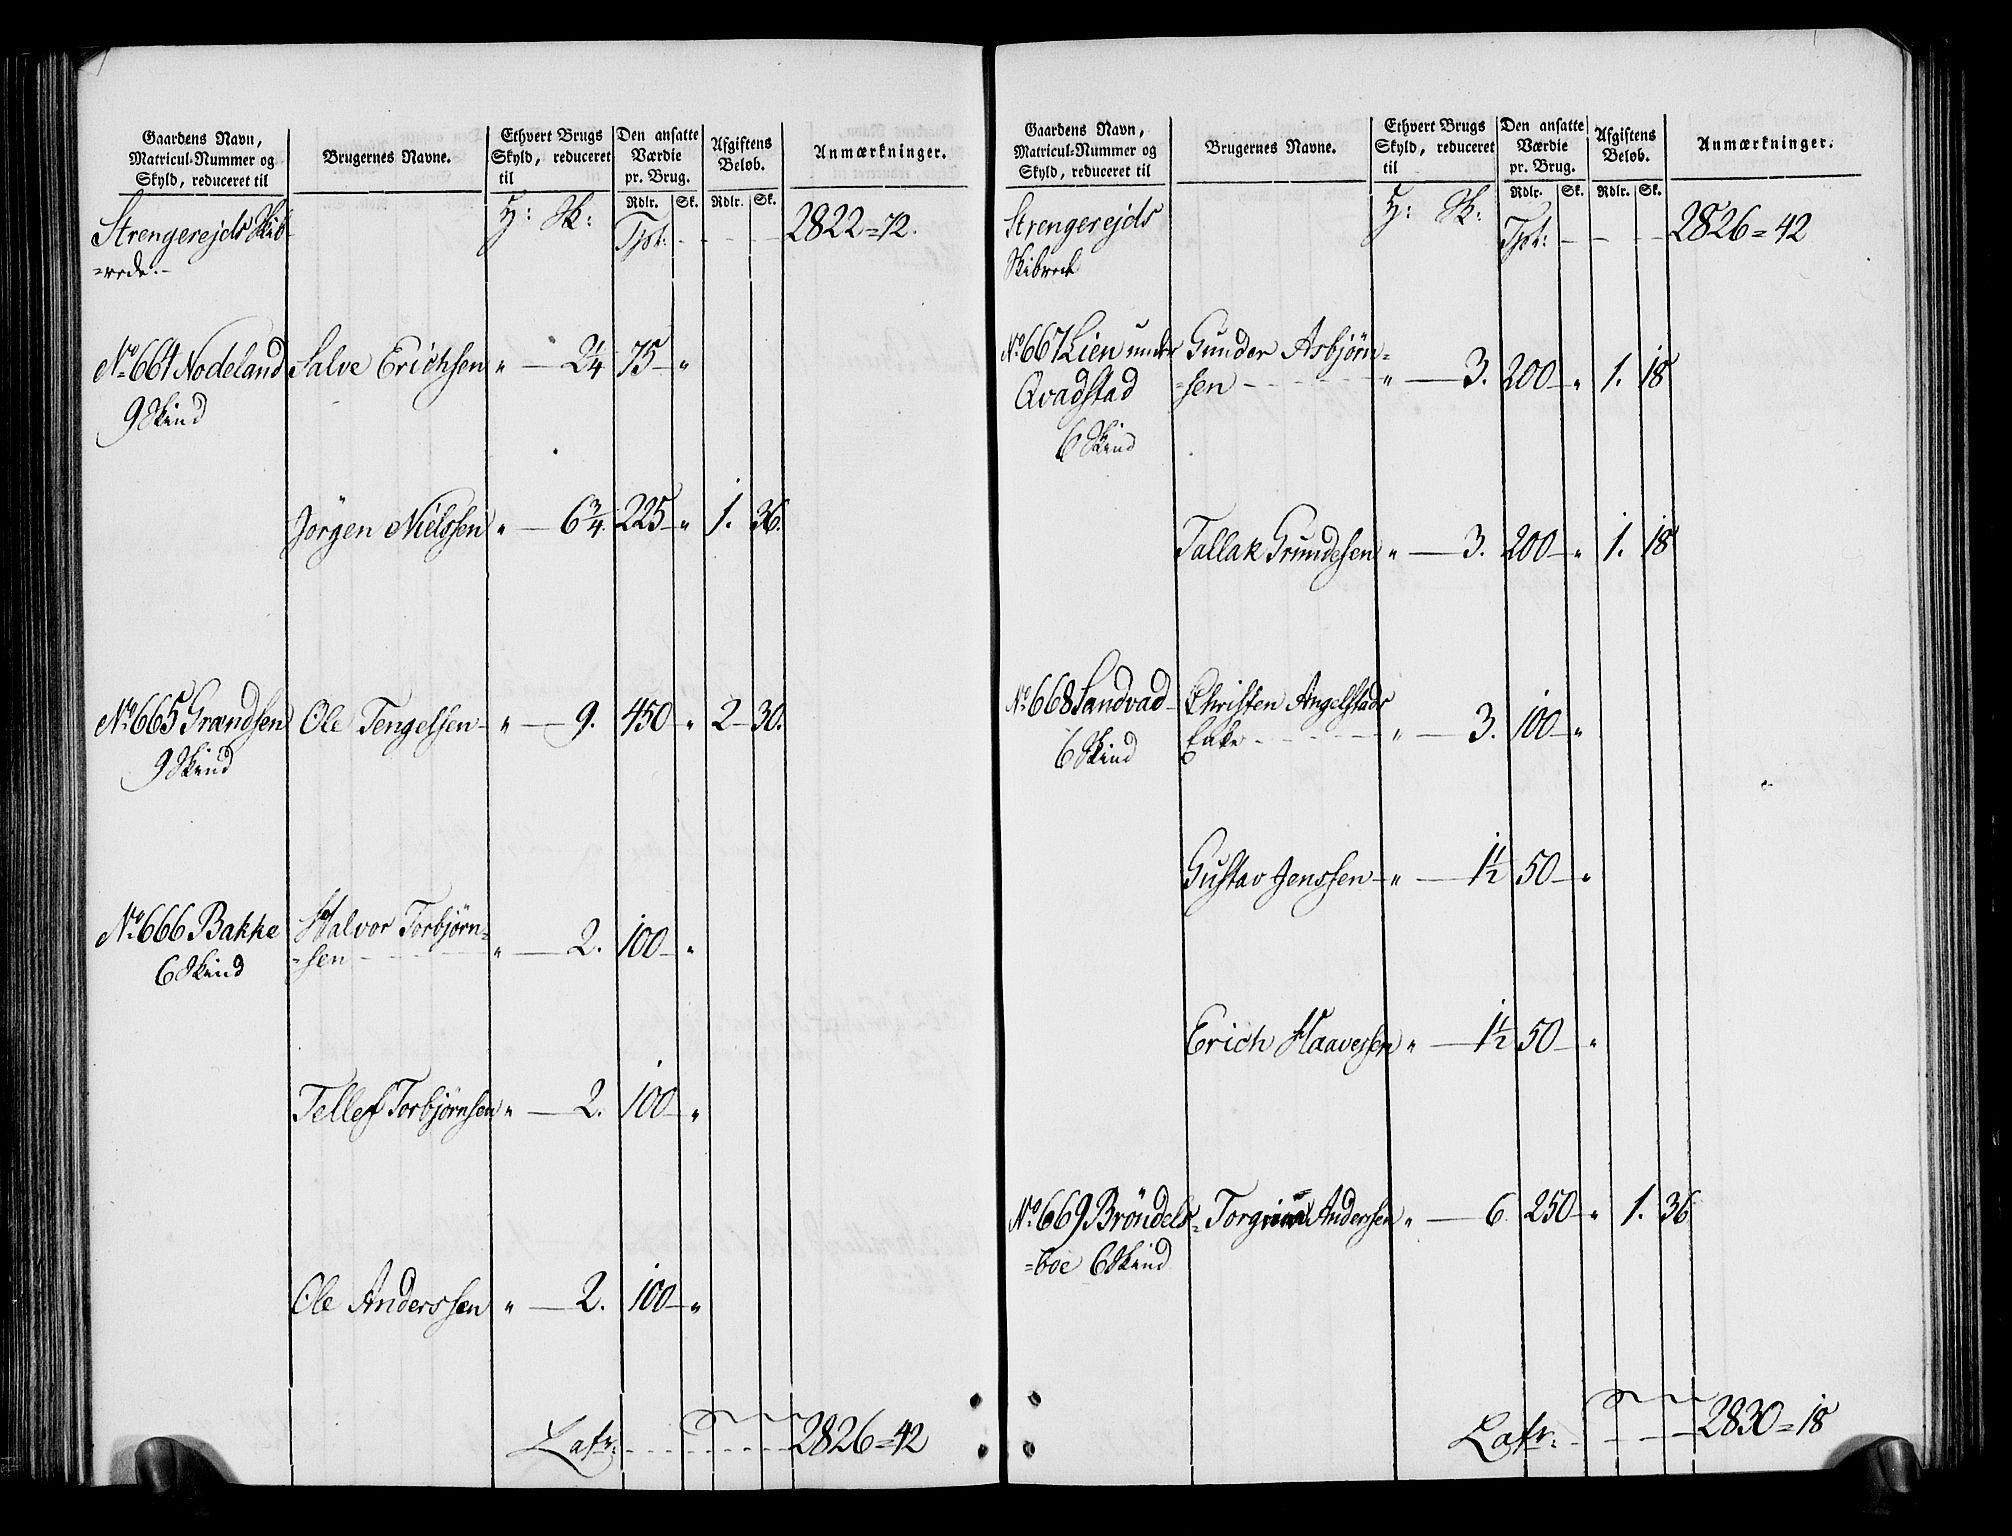 Gaardens Navn,
Matricul-Nummer og
Skyld, reduceret til
Brugernes Navne.
Ethvert Brugs
Skyld, reduceret
til
Den ansatte
Værdie
pr. Brug.
Afgiftens
Beløb.
Anmærkninger.
Rdlr. Sk. Rdlr. Sk.
Strengerejds Skib-
=rede.-
H: Sk: Tpt: 2822=72.
No 664 Nodeland Salve Erichsen " — 2 1/4 75 — "
9 Skind
Jørgen Nielssen " — 6 3/4. 225 — " 1. 36.
No 665 Grændsen Ole Tengelssen - " — 9. 450 " 2 - 30.
9 Skind
No 666 Bakke Halvor Torbjørn=
6 Skind =sen - - - " — 2. 100 — "
Tellef Torbjørnsen " — 2. 100 — "
Ole Anderssen " — 2. 100 — "
Latr: - - - 2826=42
Gaardens Navn,
Matricul-Nummer og
Skyld, reduceret til
Brugernes Navne.
Ethvert Brugs
Skyld, reduceret
til
Den ansatte
Værdie
pr. Brug.
Afgiftens
Beløb.
Anmærkninger.
Rdlr. Sk. Rdlr. Sk.
Strengerejds
Skibrede
H: Sk: Tpt: 2826=42
No 667 Lien under Gunder Asbjørn=
Qvadstad =sen - - - " — 3. 200 — " 1. 18
6 Skind
Tallak Grundesen " — 3. 200 — " 1. 18
No 668 Sandvad - Christen Angelstads
6 Skind Enke - - - " — 3. 100 — "
Gustav Jenssen - " — 1 1/2 50 — "
Erich Haavessen " — 1 1/2 50 — "
No 669 Bröndels= Anderssen " — 6 250 — " 1. 36
=boe 6 Skind
Latr: - - - 2830=18